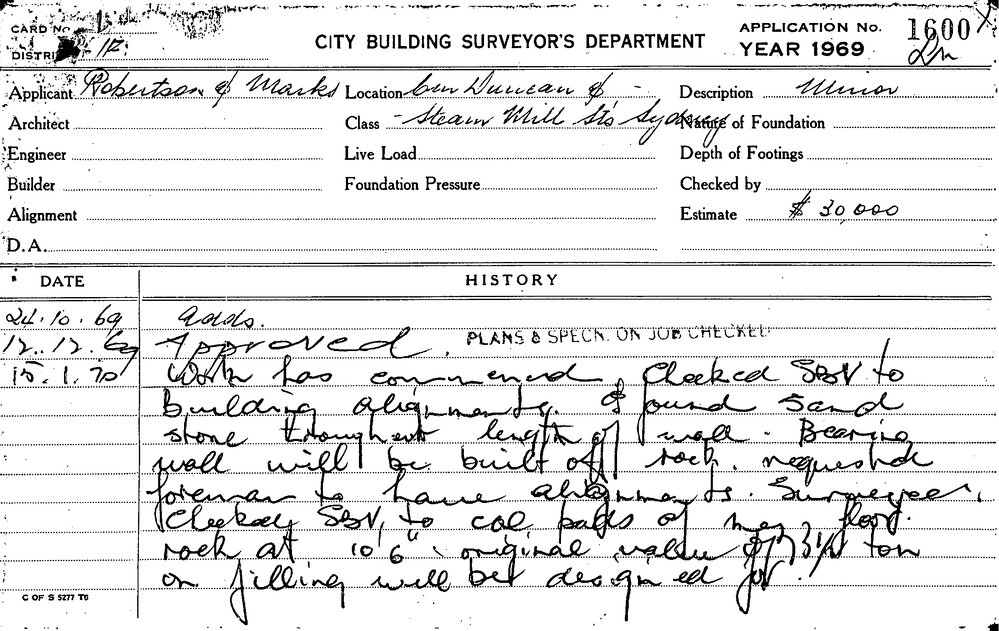 CARD No. 1
DISTRICT 12
CITY BUILDING SURVEYOR'S DEPARTMENT
APPLICATION No. 1600
YEAR 1969
Applicant Robertson & Marks
Location Cnr Duncan &
Description Minor
Architect
Class - Steam Mill Sts Sydney
Nature of Foundation
Engineer
Live Load
Depth of Footings
Builder
Foundation Pressure
Checked by
Alignment
Estimate $ 30,000
D.A.
DATE
HISTORY
24.10.69 adds.
12.12.69 Approved. PLANS & SPECN. ON JOB CHECKED
15.1.70 Work has commenced. Checked SBV to
building alignments. & found sand
stone throughout length of wall. Bearing
wall will be built off rock. requested
foreman to have alignments. Surveyed.
Checked SBV, to col pads of floor.
rock at 10'6" original value of 3½ ton
on filling will be designed for.
C OF S 5277 T6